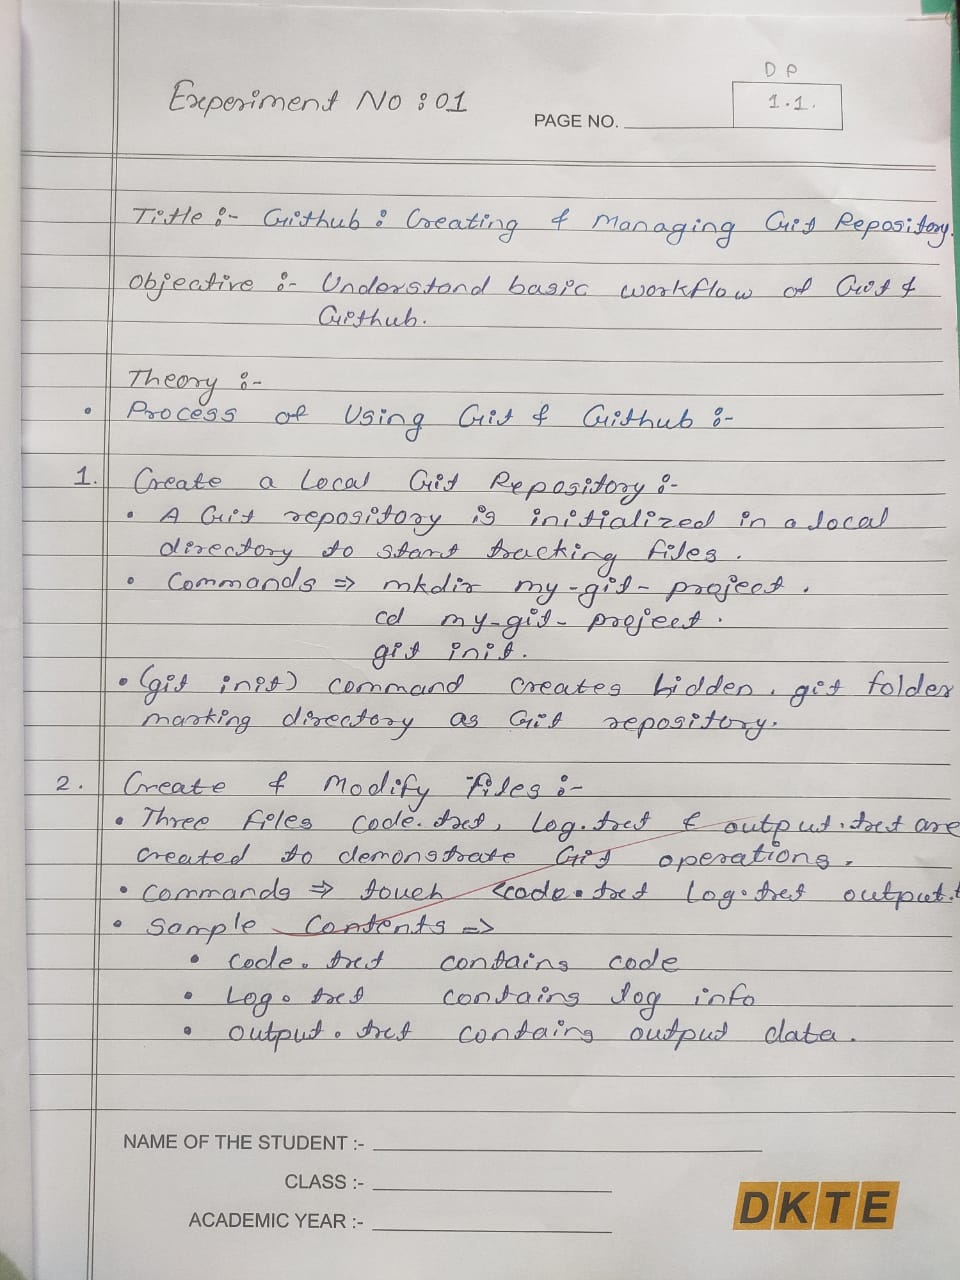 DP
Experiment No : 01
1.1.
PAGE NO.
Title :- Github : Creating & Managing Git Repository.
Objective :- Understand basic workflow of Git &
Github.
Theory :-
• Process of Using Git & Github :-
1. Create a Local Git Repository :-
• A Git repository is initialized in a local
directory to start tracking files.
• Commands => mkdir my-git-project.
cd my-git-project.
git init.
• (git init) command creates hidden .git folder
marking directory as Git repository.
2. Create & Modify Files :-
• Three files code.txt, log.txt & output.txt are
created to demonstrate Git operations.
• Commands => touch code.txt log.txt output.t
• Sample Contents =>
• code.txt contains code
• Log.txt contains log info
• output.txt contains output data.
NAME OF THE STUDENT :-
CLASS :-
ACADEMIC YEAR :-
DKTE